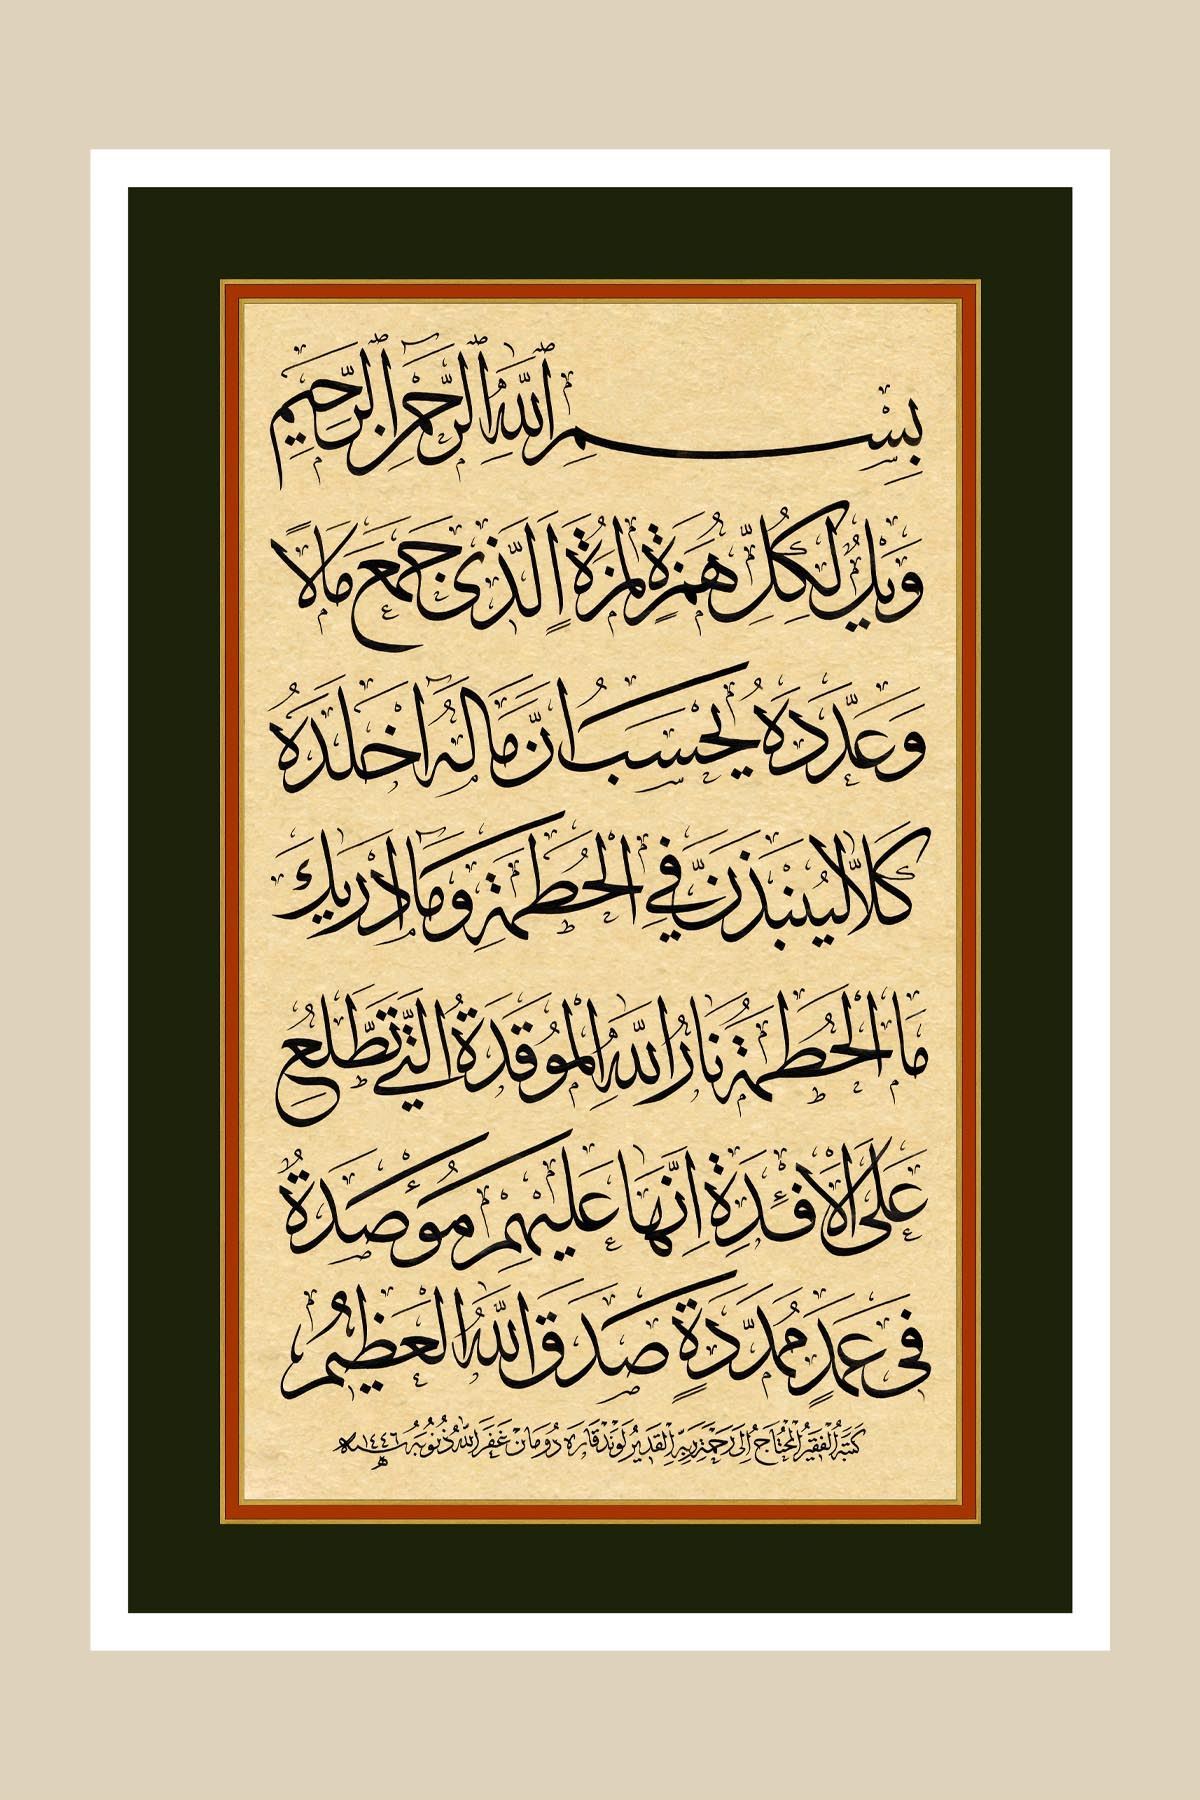 بِسْمِ اللّٰهِ الرَّحْمٰنِ الرَّحِيمِ
وَيْلٌ لِكُلِّ هُمَزَةٍ لُمَزَةٍ اَلَّذِى جَمَعَ مَالًا
وَعَدَّدَهُ يَحْسَبُ اَنَّ مَالَهُ اَخْلَدَهُ
كَلَّا لَيُنْبَذَنَّ فِي الْحُطَمَةِ وَمَا اَدْرٰيكَ
مَا الْحُطَمَةُ نَارُ اللّٰهِ الْمُوقَدَةُ الَّتِي تَطَّلِعُ
عَلَى الْاَفْئِدَةِ اِنَّهَا عَلَيْهِمْ مُؤْصَدَةٌ
فِى عَمَدٍ مُمَدَّدَةٍ صَدَقَ اللّٰهُ الْعَظِيمُ
كَتَبَهُ الْفَقِيرُ الْمُحْتَاجُ اِلَى رَحْمَةِ رَبِّهِ الْقَدِيرِ لَوَنْدْ قَارَه دُومَانْ غَفَرَ اللّٰهُ ذُنُوبَهُ سنة ١٤٤٦ هـ